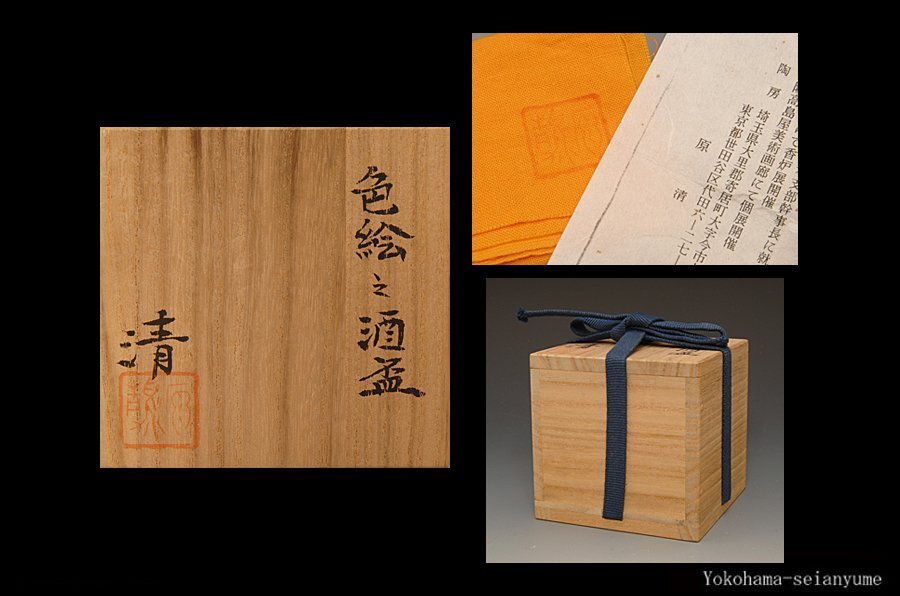 色絵之酒盃
清
支部幹事長に就
高島屋美術画廊にて個展開催
て香炉展開催
陶房 埼玉県大里郡寄居町大字今市
東京都世田谷区代田六ー二七ー
原 清
Yokohama-seianyume